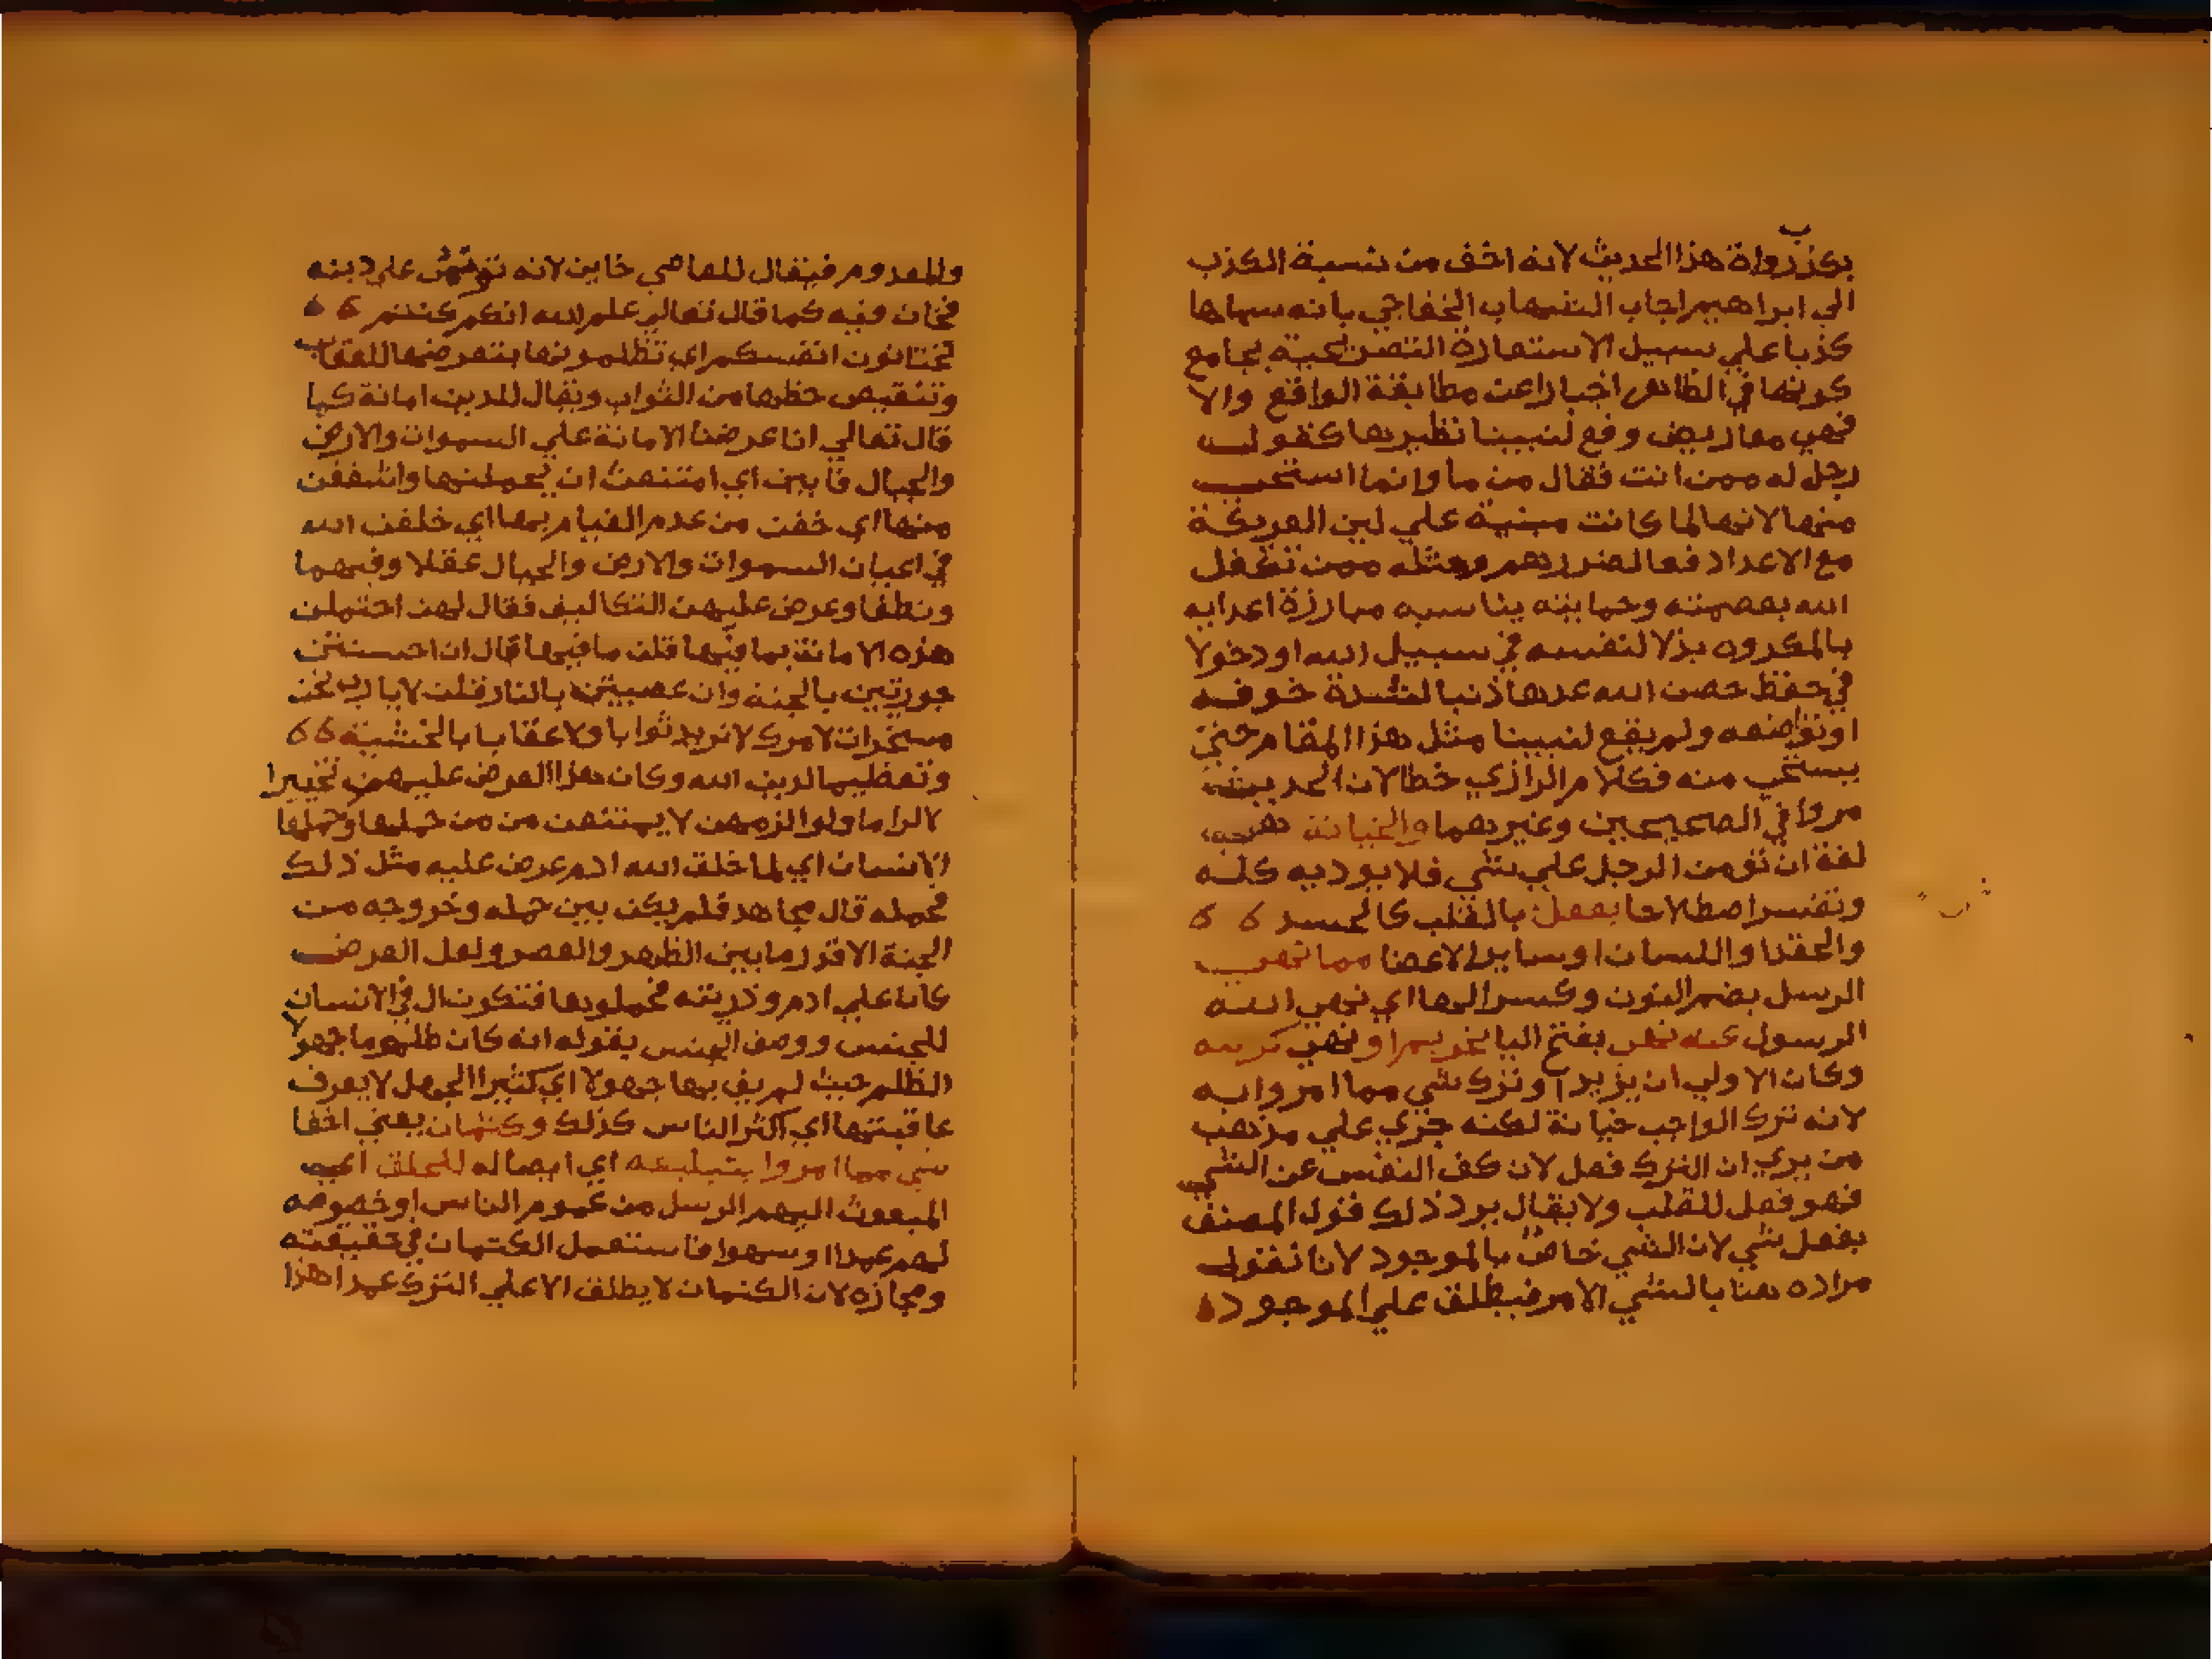 بكذب رواة هذا الحديث لانه اخف من نسبة الكذب
الي ابراهيم اجاب الشهاب الخفاجي بانه سماها
كذبا علي سبيل الاستعارة التصريحية بجامع
كونها في الظاهر اخبارا عن مطابقة الواقع والا
فهي معاريض وقع لنبينا نظيرها كقول
رجل له ممن انت فقال من ما وانما استحي
منها لانها لما كانت مبنية علي لين العريكة
مع الاعداد فعا لضررهم ومثله ممن تكفل
الله بعصمته وحمايته يناسبه مبارزة اعدايه
بالمكروه بذلا لنفسه في سبيل الله او دخولا
في حفظ حصن الله عدها ذنبا لشدة خوفه
او تواضعه ولم يقع لنبينا مثل هذا المقام حتي
يستحي منه فكلام الرازي خطا لان الحديث
مروا في الصحيحين وغيرهما والخيانة هي
لغة ان تؤمن الرجل علي شي فلا يوديه كله
وتفسر اصطلاحا بفعل بالقلب كالحسد
والحقد او اللسان او ساير الاعضا مما نهي
الرسل بضم النون وكسر الها اي نهي الله
الرسول عنه نهي بفتح اليا تحريم او نهي كريه
وكان الاولي ان يزيد او ترك شي مما امروا به
لانه ترك الواجب خيانة لكنه جري علي مذهب
من يري ان الترك فعل لان كف النفس عن الشي
فهو فعل للقلب ولا يقال يرد ذلك قول المصنف
بفعل شي لان الشي خاص بالموجود لانا نقول
مراده هنا بالشي الامر فيطلق علي الموجود
والمعدوم فيقال للعاصي خاين لانه تؤتمن علي دينه
فخان فيه كما قال تعالي علم الله انكم كنتم
تختانون انفسكم اي تظلمونها بتعرضها للعقاب
وتنقيص حظها من الثواب ويقال للدين امانة كما
قال تعالي انا عرضنا الامانة علي السموات والارض
والجبال فابين اي امتنعن ان يحملنها واشفقن
منها اي خفن من عدم القيام بها اي خلفن الله
في اعيان السموات والارض والجبال عقلا وفهما
ونطقا وعرض عليهن التكاليف فقال لهن احتملن
هذه الامانة بما فيها قلن ما فيها قال ان احسنتن
جوزيتن بالجنة وان عصيتن بالنار قلن لا يا رب نحن
مسخرات لامرك لا نريد ثوابا ولا عقابا بالخشية
وتعظيما لدين الله وكان هذا العرض عليهن تخييرا
لا الزاما ولو الزمهن لا يمتنعن من من حملها وحملها
الانسان اي لما خلق الله ادم عرض عليه مثل ذلك
فحمله قال مجاهد فلم يكن بين حمله وخروجه من
الجنة الا قدر ما بين الظهر والعصر ولعل العرض
كان علي ادم وذريته فحملوها فتكون ال في الانسان
للجنس ووصف الجنس بقوله انه كان ظلوما جهولا
الظلم حيث لم يف بها جهولا اي كثير الجهل لا يعرف
عاقبتها اي اكثر الناس كذلك وكتمان يعني اخفا
شي مما امروا بتبليغه اي ايصاله للخلق اي
المبعوث اليهم الرسل من عموم الناس او خصوصه
لهم عمدا او سهوا فاستعمل الكتمان في حقيقته
ومجازه لان الكتمان لا يطلق الا علي الترك عمدا هذا